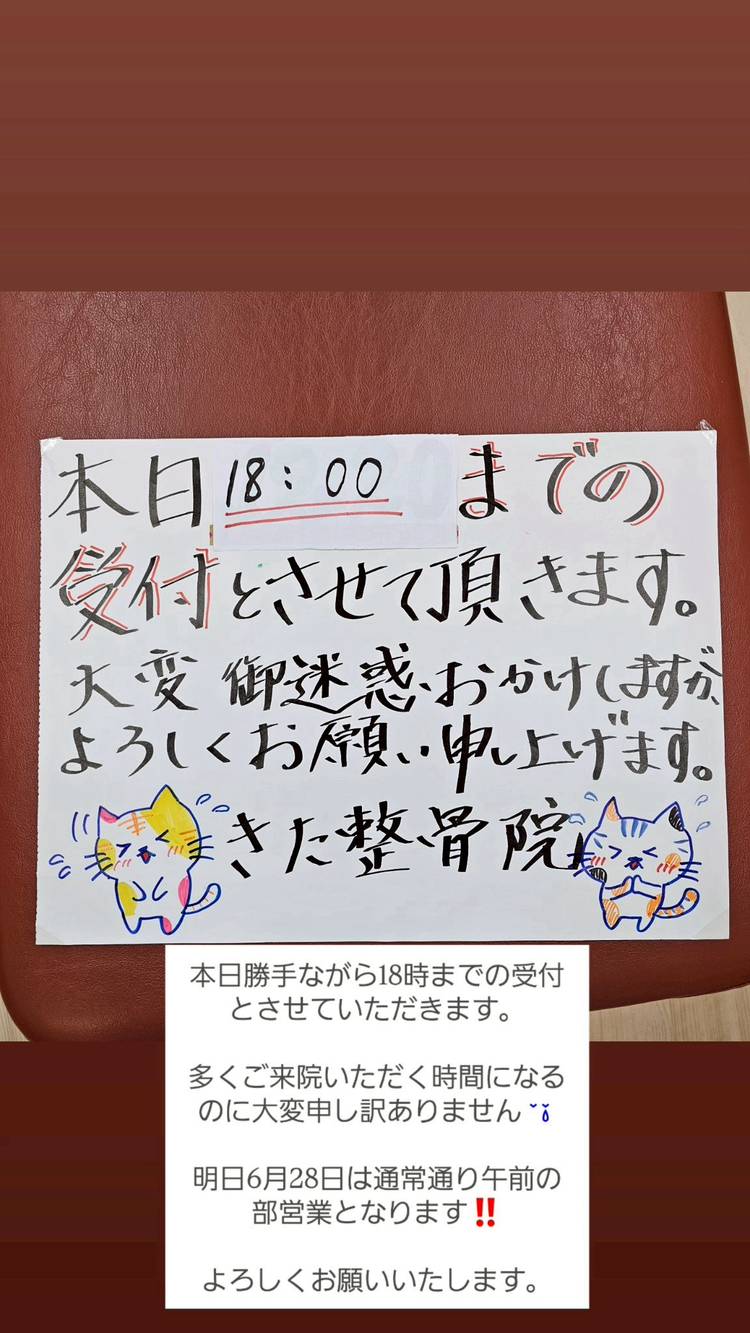 本日18:00までの
受付とさせて頂きます。
大変御迷惑おかけしますが、
よろしくお願い申し上げます。
きた整骨院
本日勝手ながら18時までの受付
とさせていただきます。
多くご来院いただく時間になる
のに大変申し訳ありません
明日6月28日は通常通り午前の
部営業となります‼️
よろしくお願いいたします。